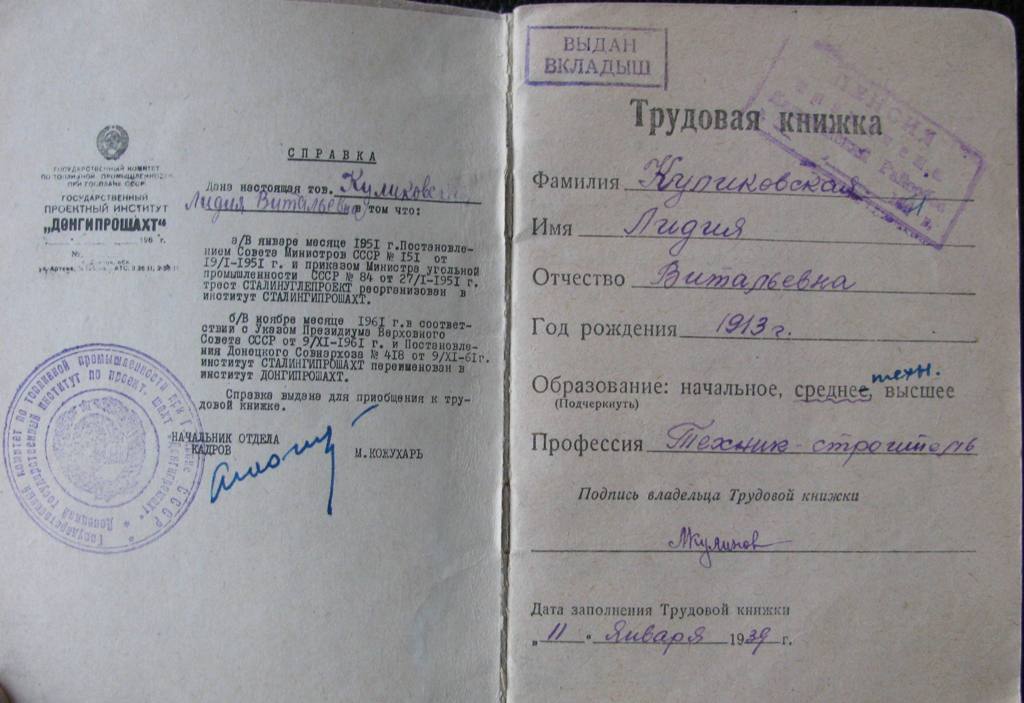 ГОСУДАРСТВЕННЫЙ КОМИТЕТ
ПО ТОПЛИВНОЙ ПРОМЫШЛЕННОСТИ
ПРИ ГОСПЛАНЕ СССР
ГОСУДАРСТВЕННЫЙ
ПРОЕКТНЫЙ ИНСТИТУТ
„ДОНГИПРОШАХТ“
196 г.
№
СПРАВКА
Дана настоящая тов. Куликовской
Лидия Витальевна в том что:
а/В январе месяце 1951 г.Постановле-
нием Совета Министров СССР № 151 от
19/I-1951 г. и приказом Министра угольной
промышленности СССР № 84 от 27/I-1951 г.
трест СТАЛИНУГЛЕПРОЕКТ реорганизован в
институт СТАЛИНГИПРОШАХТ.
б/В ноябре месяце 1961 г.в соответ-
ствии с Указом Президиума Верховного
Совета СССР от 9/XI-1961 г. и Постановле-
ния Донецкого Совнархоза № 418 от 9/XI-61г.
институт СТАЛИНГИПРОШАХТ переименован в
институт ДОНГИПРОШАХТ.
Справка выдана для приобщения к тру-
довой книжке.
НАЧАЛЬНИК ОТДЕЛА
КАДРОВ М.КОЖУХАРЬ
ВЫДАН
ВКЛАДЫШ
ПЕНСИЯ
Трудовая книжка
Фамилия Куликовская
Имя Лидия
Отчество Витальевна
Год рождения 1913 г.
техн.
Образование: начальное, среднее, высшее
(Подчеркнуть)
Профессия Техник-строитель
Подпись владельца Трудовой книжки
Дата заполнения Трудовой книжки
„11“ Января 1939 г.